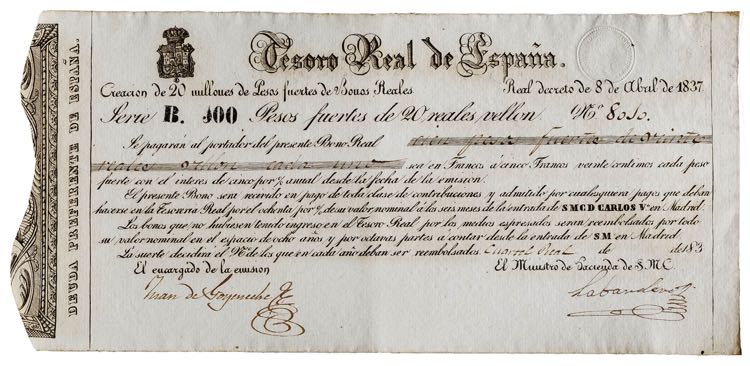 Tesoro Real de España.
Creacion de 20 millones de Pesos fuertes de Bonos Reales.
Real decreto de 8 de Abril de 1837
Serie B. 100 Pesos fuertes de 20 reales vellon. Nº 8010.
Se pagarán al portador del presente Bono Real cien pesos fuertes de veinte
reales vellon cada uno sea en Francos á cinco Francos veinte centimos cada peso
fuerte con el interes de cinco por % anual desde la fecha de la emision.
El presente Bono sera recivido en pago de toda clase de contribuciones y admitido por cualesquiera pagos que deban
hacerse en la Tesoreria Real por el ochenta por % de su valor, nominal á los seis meses de la entrada de S M C D CARLOS Vº en Madrid.
Los bonos que no hubiesen tenido ingreso en el Tesoro Real por los medios espresados seran reembolsados por todo
su valor nominal en el espacio de ocho años y por octavas partes á contar desde la entrada de S M en Madrid
La suerte decidira el Nº de los que en cada año deban ser reembolsados de de 183
El encargado de la emision
El Ministro de Hacienda de S.M.C.
Juan de Goyeneche
Labandero
DEUDA PREFERENTE DE ESPAÑA.